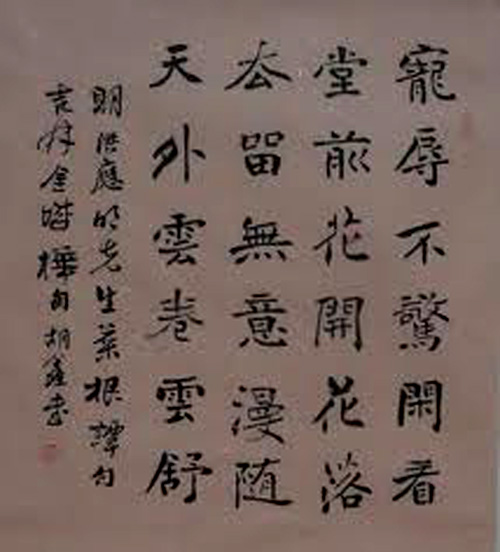 寵辱不驚閑看
堂前花開花落
去留無意漫随
天外雲卷雲舒
明洪應明先生菜根譚句
吉林 樺甸胡鑫書